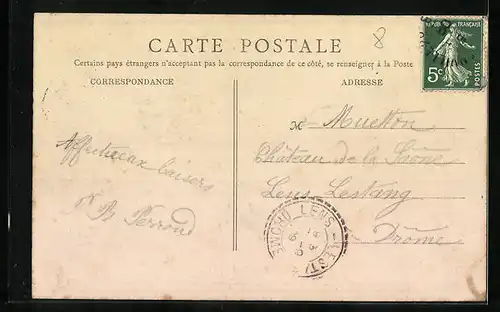 8
RÉPUBLIQUE FRANÇAISE
5c
POSTES
CARTE POSTALE
Certains pays étrangers n'acceptant pas la correspondance de ce côté, se renseigner à la Poste
CORRESPONDANCE
ADRESSE
Affectueux baisers
Perroud
M
Château de la Saône
Lens Lestang
Drôme
LENS-LEST
DROME